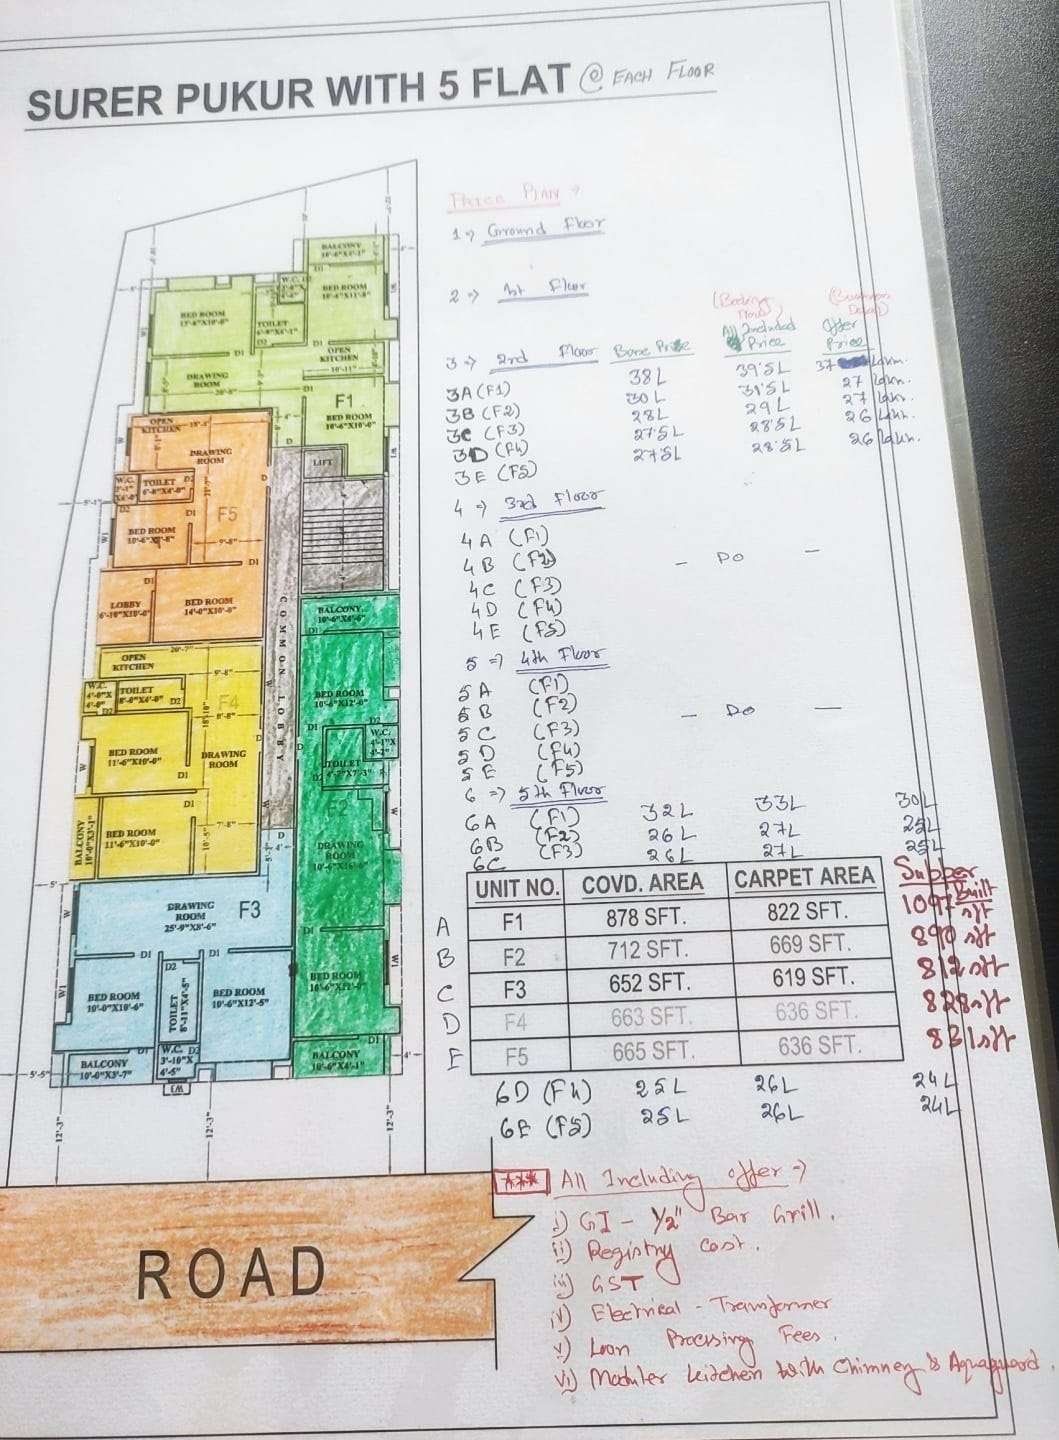 SURER PUKUR WITH 5 FLAT @ EACH FLOOR
PRICE PLAN →
1 ⇒ Ground Floor
2 ⇒ 1st Floor
(Booking Now) (Business Down)
3 ⇒ 2nd Floor Base Price All Included Price Offer Price
3A (F1) 38L 39.5L 37 Lakh.
3B (F2) 30L 31.5L 27 Lakh.
3C (F3) 28L 29L 27 Lakh.
3D (F4) 27.5L 28.5L 26 Lakh.
3E (F5) 27.5L 28.5L 26 Lakh.
4 ⇒ 3rd Floor
4A (F1)
4B (F2) – DO –
4C (F3)
4D (F4)
4E (F5)
5 ⇒ 4th Floor
5A (F1)
5B (F2) – DO –
5C (F3)
5D (F4)
5E (F5)
6 ⇒ 5th Floor
6A (F1) 32L 33L 30L
6B (F2) 26L 27L 25L
6C (F3) 26L 27L 25L
UNIT NO. COVD. AREA CARPET AREA Supper Built
A F1 878 SFT. 822 SFT. 1097 sft
B F2 712 SFT. 669 SFT. 890 sft
C F3 652 SFT. 619 SFT. 812 sft
D F4 663 SFT. 636 SFT. 828 sft
E F5 665 SFT. 636 SFT. 831 sft
6D (F4) 25L 26L 24L
6E (F5) 25L 26L 24L
*** All Including offer ⇒
i) GI – 1/2" Bar Grill.
ii) Registry cost.
iii) GST
iv) Electrical - Transformer
v) Loan Processing Fees.
vi) Moduler kitchen with Chimney & Aquaguard.
BALCONY
BED ROOM
W.C.
BED ROOM
TOILET
D2
OPEN KITCHEN
10'-11"
D1
DRAWING ROOM
F1
BED ROOM
10'-6"X10'-0"
OPEN KITCHEN
DRAWING ROOM
LIFT
W.C.
TOILET
D2
F5
BED ROOM
9'-8"
D1
LOBBY
6'-10"X10'-0"
BED ROOM
14'-0"X10'-0"
COMMON LOBBY
BALCONY
OPEN KITCHEN
20'-7"
9'-8"
W.C.
4'-0"X4'-0"
TOILET
8'-0"X4'-0"
D2
F4
BED ROOM
11'-6"X10'-0"
D1
DRAWING ROOM
BALCONY
10'-0"X3'-1"
BED ROOM
11'-6"X10'-0"
7'-8"
10'-5"
BED ROOM
10'-6"X12'-0"
W.C.
TOILET
F2
DRAWING ROOM
BED ROOM
BALCONY
10'-0"X4'-1"
DRAWING ROOM
25'-9"X8'-6"
F3
BED ROOM
10'-0"X10'-6"
TOILET
8'-11"X4'-5"
BED ROOM
10'-6"X12'-5"
BALCONY
10'-0"X3'-7"
W.C.
3'-10"X4'-5"
W3
5'-5"
4'
12'-3"
12'-3"
12'-3"
ROAD